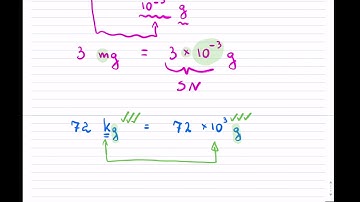 10⁻³ g
3 mg = 3 × 10⁻³ g
SN
72 kg = 72 × 10³ g